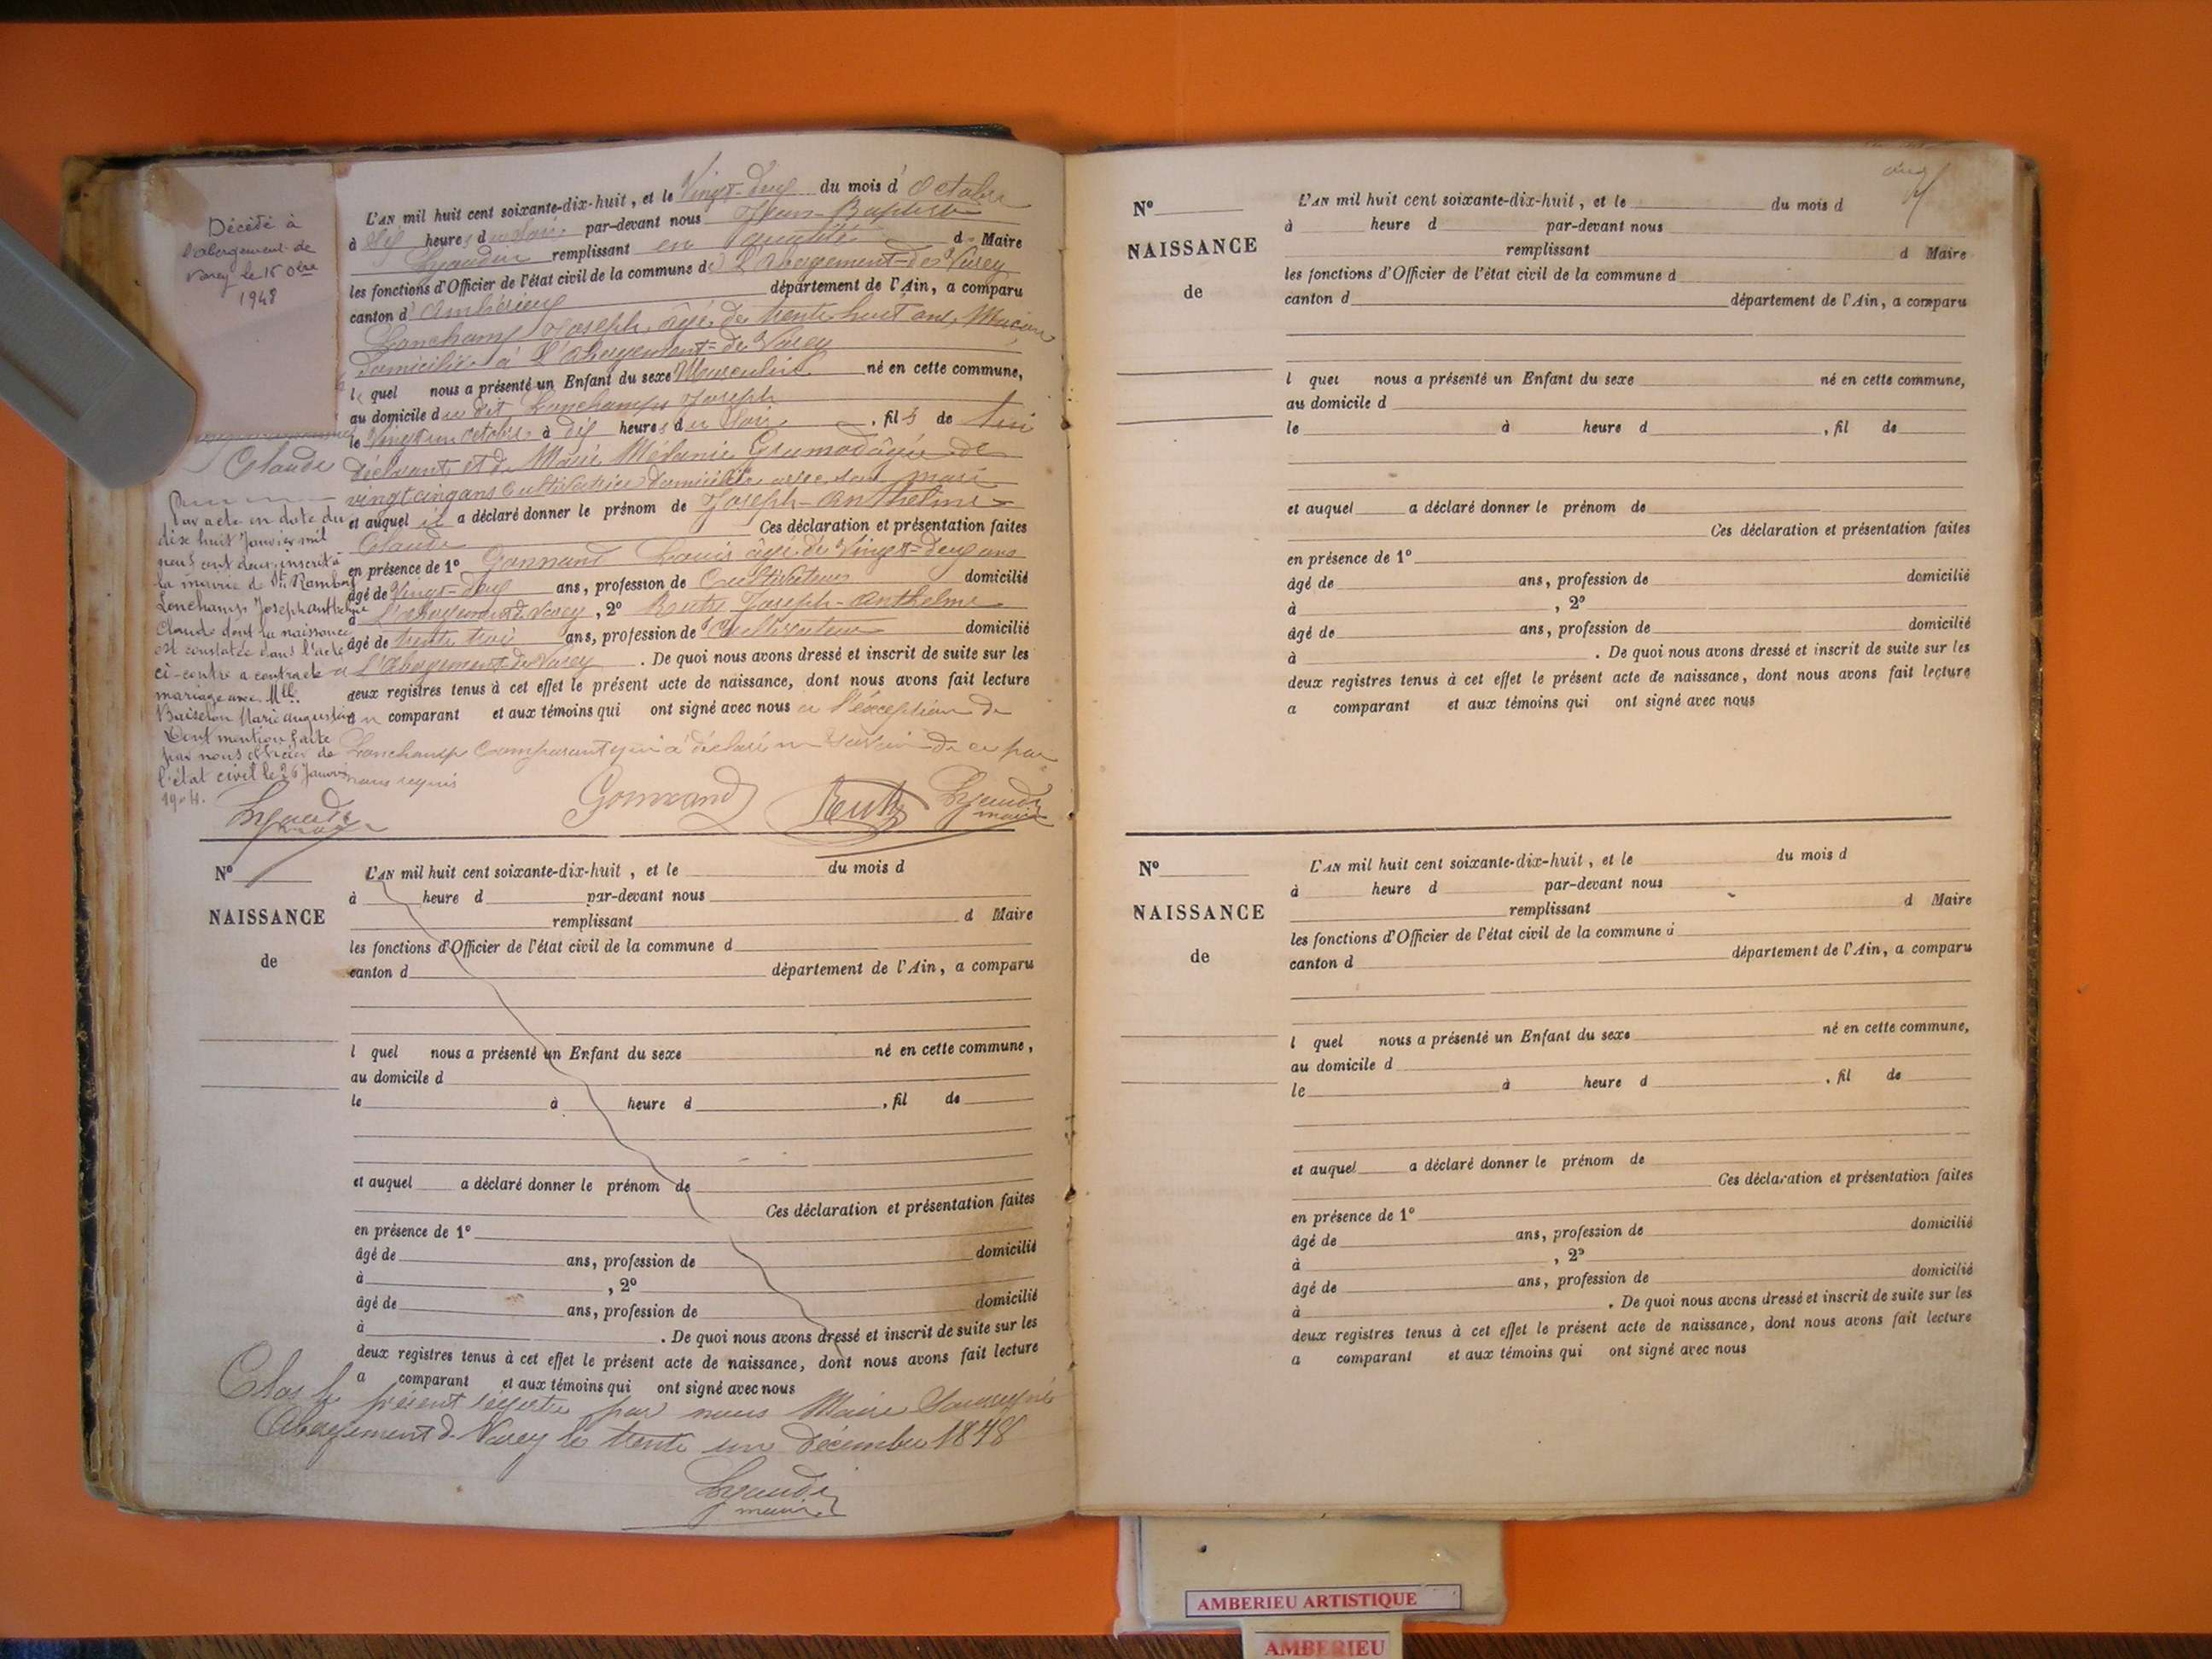 Décédé à
l'abergement-de
Varey le 15 8bre
1948
Claude
Par acte en date du
dix huit Janvier mil
neuf cent deux, inscrit à
la mairie de St Rambert
Lonchamp Joseph Anthelme
Claude dont la naissance
est constatée dans l'acte
ci-contre a contracté
mariage avec Mlle
Marie Augustine
Dont mention faite
par nous officier de
l'état civil le 26 Janvier
L'AN mil huit cent soixante-dix-huit, et le Vingt-deux du mois d'Octobre
à Six heures du Soir par-devant nous Jean-Baptiste
remplissant en qualité de Maire
les fonctions d'Officier de l'état civil de la commune de L'Abergement-de-Varey
canton d'Ambérieux département de l'Ain, a comparu
Lonchamp Joseph, âgé de trente huit ans, Maçon
domicilié à L'Abergement-de-Varey
lequel nous a présenté un Enfant du sexe Masculin né en cette commune,
au domicile du dit Lonchamp Joseph
le Vingt un octobre à dix heures du Soir, fils de lui
déclarant et de Marie Mélanie âgée de
vingt cinq ans Cultivatrice domiciliée avec son mari
et auquel il a déclaré donner le prénom de Joseph-Anthelme
Claude Ces déclaration et présentation faites
en présence de 1° Gonnand Louis âgé de Vingt-deux ans
âgé de Vingt-deux ans, profession de Cultivateur domicilié
à L'Abergement de Varey, 2° Joseph-Anthelme
âgé de trente trois ans, profession de Cultivateur domicilié
à L'Abergement de Varey. De quoi nous avons dressé et inscrit de suite sur les
deux registres tenus à cet effet le présent acte de naissance, dont nous avons fait lecture
au comparant et aux témoins qui ont signé avec nous à l'exception de
Lonchamp Comparant qui a déclaré ne savoir de ce par
nous requis
Gonnand
maire
N°
NAISSANCE
de
L'AN mil huit cent soixante-dix-huit, et le du mois d
à heure d par-devant nous
remplissant d Maire
les fonctions d'Officier de l'état civil de la commune d
canton d département de l'Ain, a comparu
l quel nous a présenté un Enfant du sexe né en cette commune,
au domicile d
le à heure d , fil de
et auquel a déclaré donner le prénom de
Ces déclaration et présentation faites
en présence de 1°
âgé de ans, profession de domicilié
à , 2°
âgé de ans, profession de domicilié
à . De quoi nous avons dressé et inscrit de suite sur les
deux registres tenus à cet effet le présent acte de naissance, dont nous avons fait lecture
a comparant et aux témoins qui ont signé avec nous
Clos le présent registre par nous Maire Soussigné
Abergement de Varey le trente un Décembre 1878
maire
N°
NAISSANCE
de
L'AN mil huit cent soixante-dix-huit, et le du mois d
à heure d par-devant nous
remplissant d Maire
les fonctions d'Officier de l'état civil de la commune d
canton d département de l'Ain, a comparu
l quel nous a présenté un Enfant du sexe né en cette commune,
au domicile d
le à heure d , fil de
et auquel a déclaré donner le prénom de
Ces déclaration et présentation faites
en présence de 1°
âgé de ans, profession de domicilié
à , 2°
âgé de ans, profession de domicilié
à . De quoi nous avons dressé et inscrit de suite sur les
deux registres tenus à cet effet le présent acte de naissance, dont nous avons fait lecture
a comparant et aux témoins qui ont signé avec nous
N°
NAISSANCE
de
L'AN mil huit cent soixante-dix-huit, et le du mois d
à heure d par-devant nous
remplissant d Maire
les fonctions d'Officier de l'état civil de la commune d
canton d département de l'Ain, a comparu
l quel nous a présenté un Enfant du sexe né en cette commune,
au domicile d
le à heure d , fil de
et auquel a déclaré donner le prénom de
Ces déclaration et présentation faites
en présence de 1°
âgé de ans, profession de domicilié
à , 2°
âgé de ans, profession de domicilié
à . De quoi nous avons dressé et inscrit de suite sur les
deux registres tenus à cet effet le présent acte de naissance, dont nous avons fait lecture
a comparant et aux témoins qui ont signé avec nous
AMBERIEU ARTISTIQUE
AMBERIEU